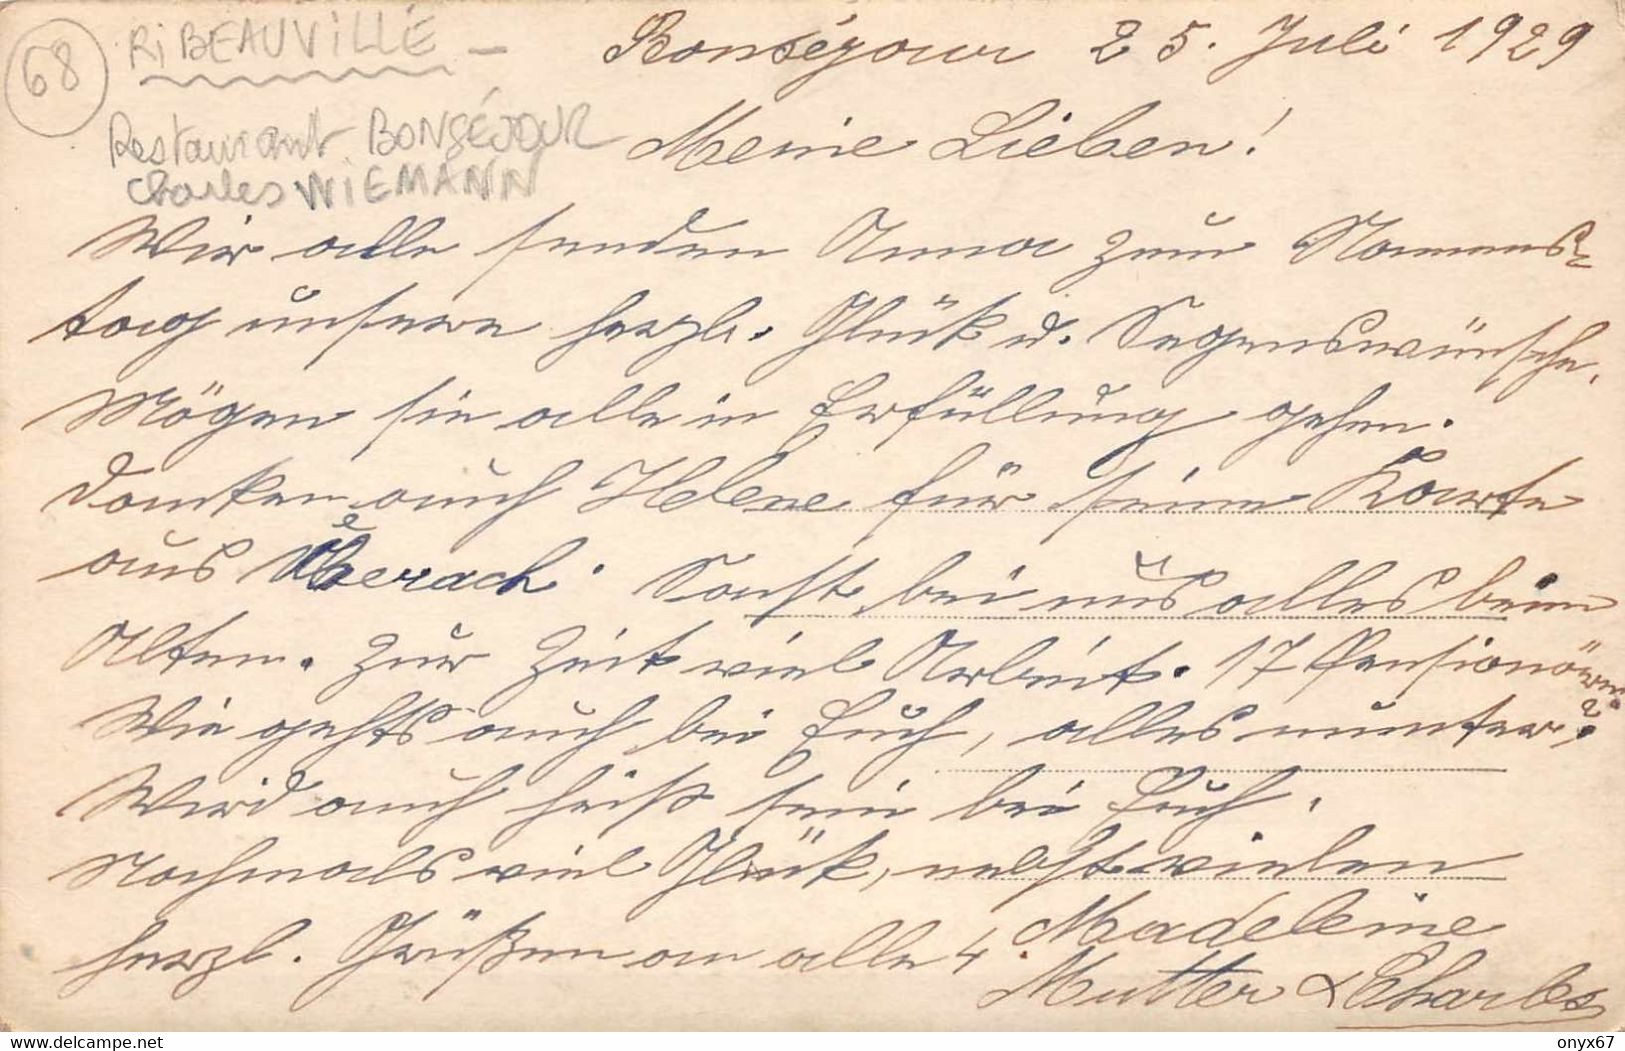 68
RIBEAUVILLÉ -
Restaurant BONSÉJOUR
Charles WIEMANN
Bonséjour 25. Juli 1929
Meine Lieben!
Wir alle senden Anna zum Namens-
tag unsere herzl. Glück u. Segenswünsche.
Mögen sie alle in Erfüllung gehen.
Danken auch Helene für seine Karte
aus Überach. Sonst bei uns alles beim
Alten. Zur Zeit viel Arbeit. 17 Pensionäre.
Wie gehts auch bei Euch, alles munter?
Wird auch heiß sein bei Euch.
Nochmals viel Glück, nebst vielen
herzl. Grüßen an alle 4. Madeleine
Mutter & Charles
www.delcampe.net
onyx67